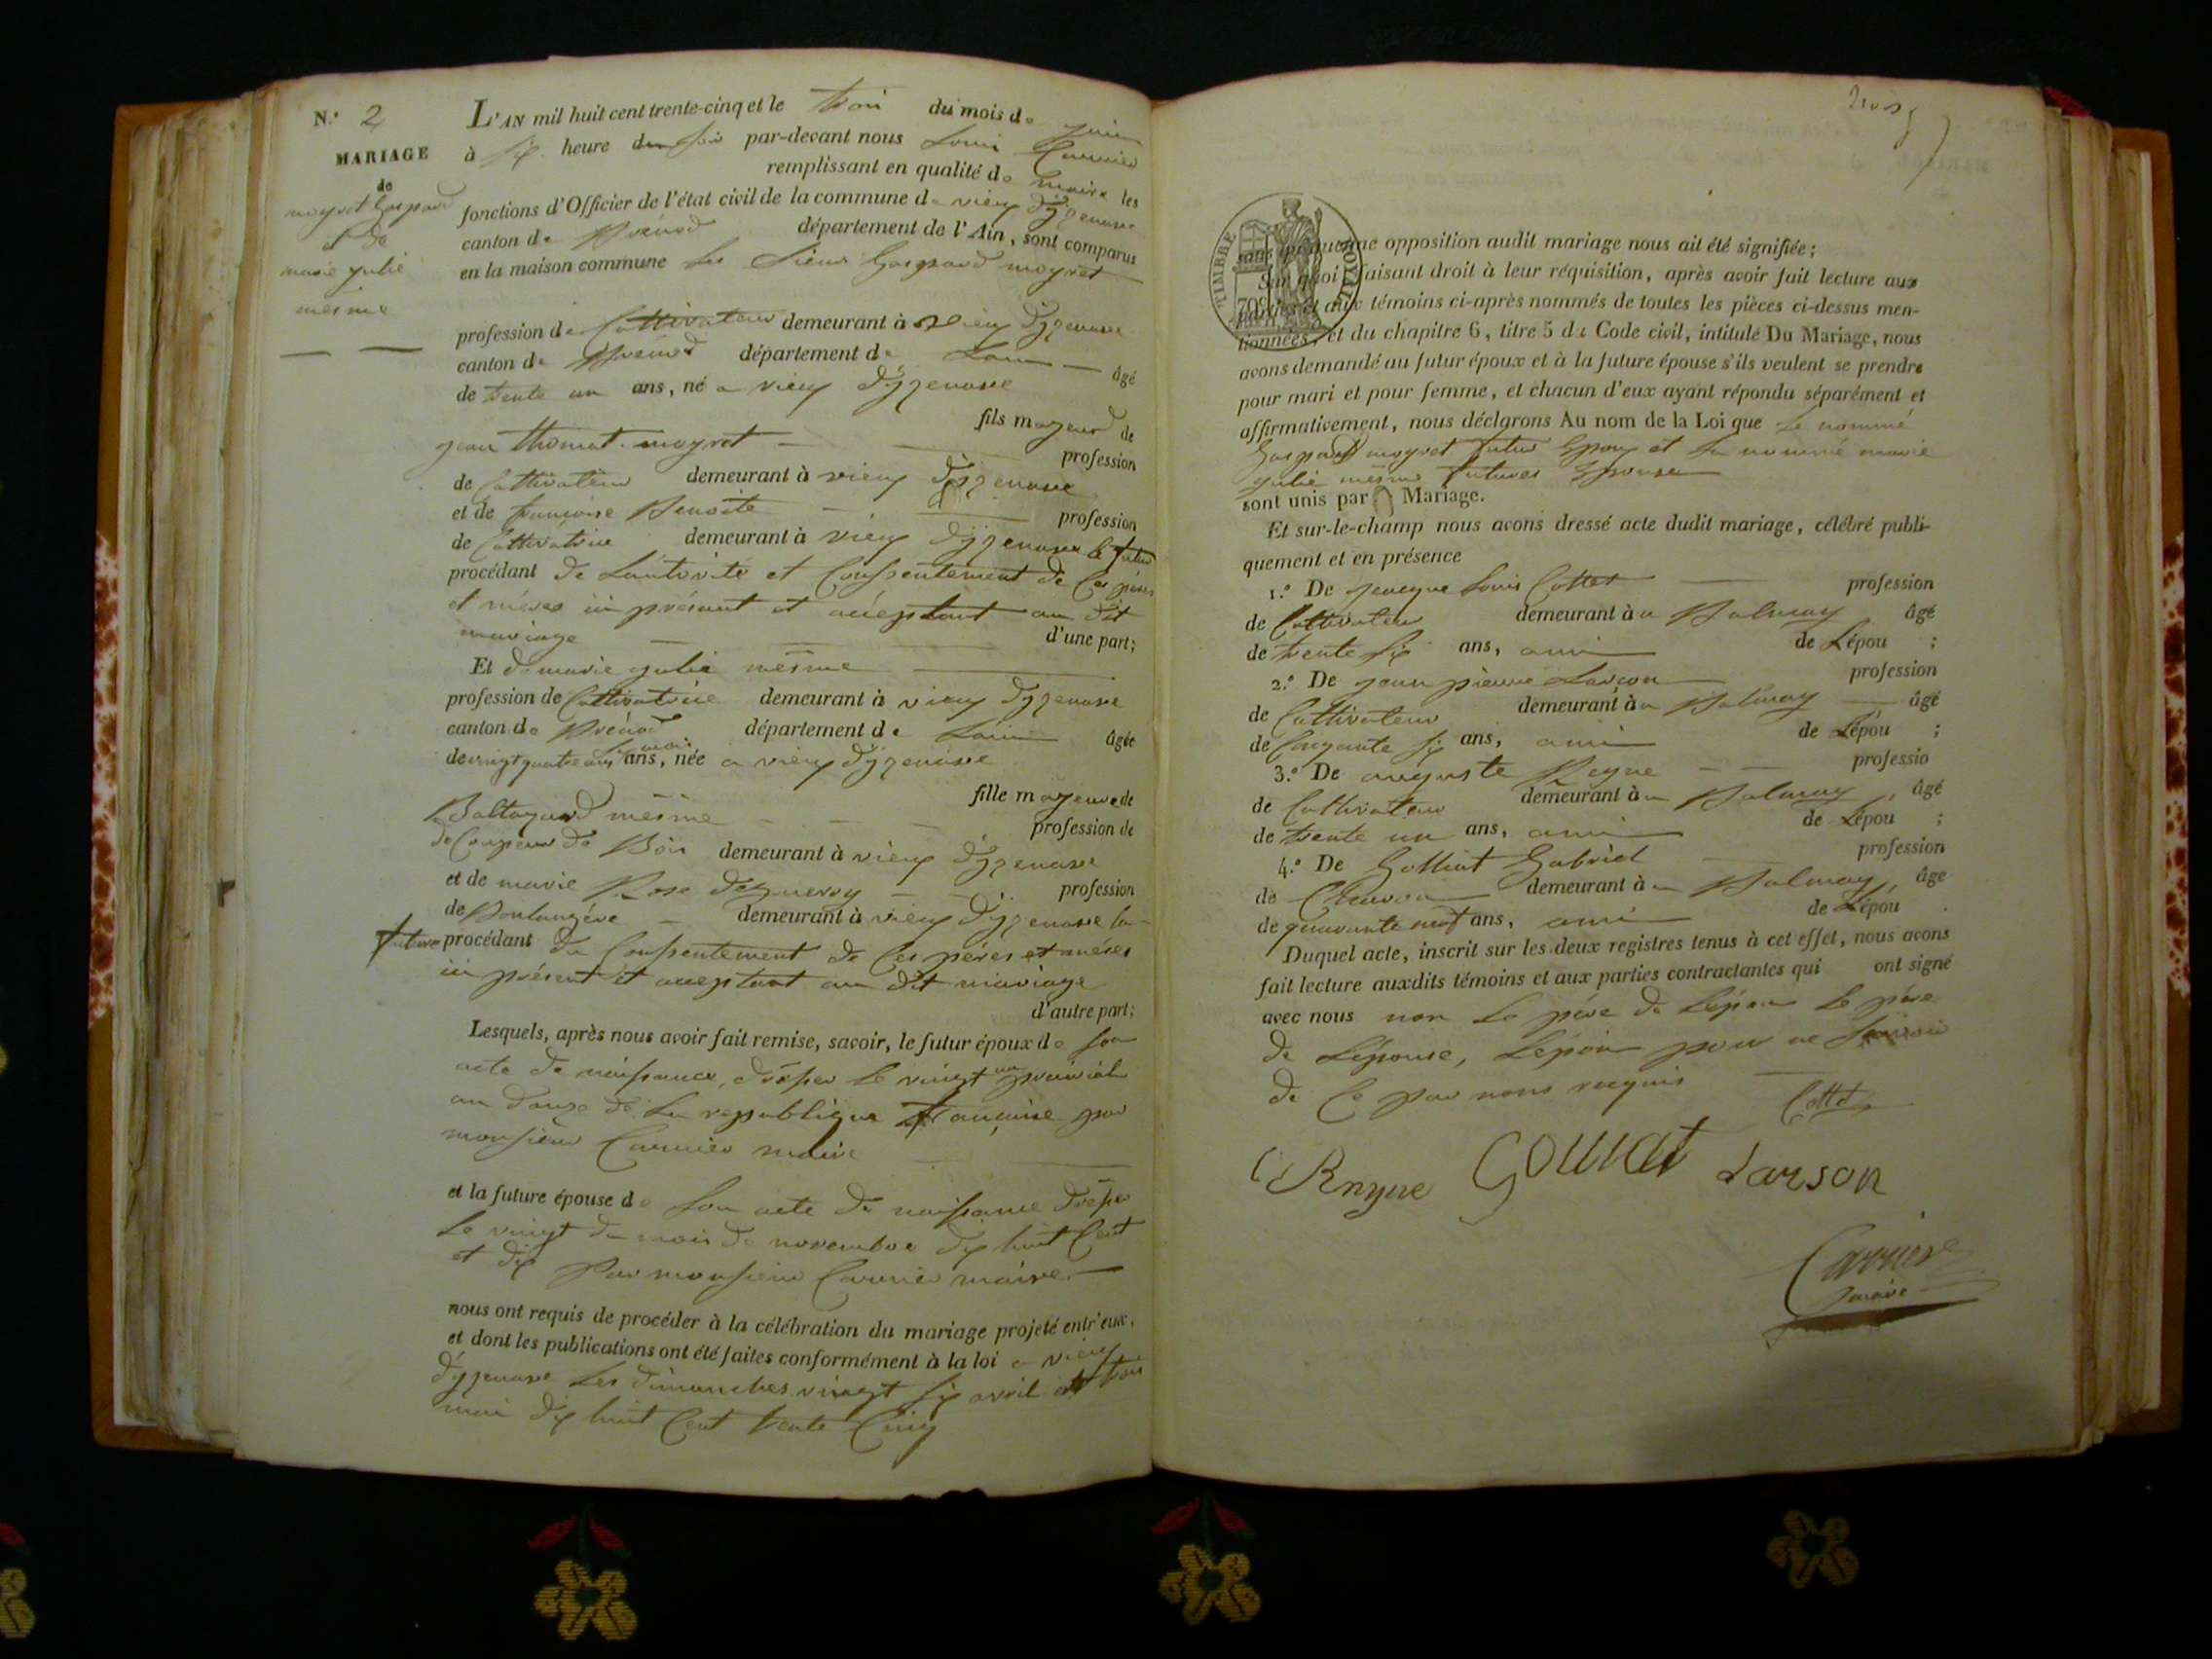 N.° 2
MARIAGE
de
moyret Gaspard
et de
marie julie
mesme
L'AN mil huit cent trente-cinq et le trois du mois de juin
à six heure du soir par-devant nous Louis Carrier
remplissant en qualité de maire les
fonctions d'Officier de l'état civil de la commune de vieux d'izenave
canton de Brénod département de l'Ain, sont comparus
en la maison commune les sieur Gaspard moyret
profession de Cultivateur demeurant à vieux d'izenave
canton de Brénod département de Lain âgé
de trente un ans, né a vieux d'izenave
fils mageur de
jean thomat moyret profession
de Cultivateur demeurant à vieux d'izenave
et de francoise Benoite profession
de Cultivatrice demeurant à vieux d'izenave le futur
procédant de Lautorité et Conssentement de Ces pères
et mères ici présant et acceptant au dit
mariage d'une part;
Et de marie julie mesme
profession de Cultivatrice demeurant à vieux d'izenave
canton de Brénod département de Lain âgée
de vingt quatre ans six mois ans, née a vieux d'izenave
fille mageure de
Baltazard mesme profession de
de Coupeur de Bois demeurant à vieux d'izenave
et de marie Rose profession
de Boulangère demeurant à vieux d'izenave la
future procédant du Conssentement de Ces pères et mères
ici présent et acceptant au dit mariage
d'autre part;
Lesquels, après nous avoir fait remise, savoir, le futur époux de son
acte de naissance, dressé le vingt un prairial
an douze de la republique francaise par
monsieur Carrier maire
et la future épouse de son acte de naissance dressé
le vingt du mois de novembre dix huit Cent
et dix par monsieur Carrier maire
nous ont requis de procéder à la célébration du mariage projeté entr'eux,
et dont les publications ont été faites conformément à la loi a vieux
d'izenave les dimanches vingt six avril et trois
mai dix huit Cent trente Cinq
opposition audit mariage nous ait été signifiée;
Sur quoi faisant droit à leur réquisition, après avoir fait lecture aux
parties et aux témoins ci-après nommés de toutes les pièces ci-dessus men-
tionnées, et du chapitre 6, titre 5 du Code civil, intitulé Du Mariage, nous
avons demandé au futur époux et à la future épouse s'ils veulent se prendre
pour mari et pour femme, et chacun d'eux ayant répondu séparément et
affirmativement, nous déclarons Au nom de la Loi que le nommé
Gaspard moyret futur Epoux et La nommé marie
julie mesme futures Epouse
sont unis par Mariage.
Et sur-le-champ nous avons dressé acte dudit mariage, célébré publi-
quement et en présence
1.° De Louis Cottet profession
de Cultivateur demeurant à a Balmay âgé
de trente six ans, ami de Lépou ;
2.° De jean pierre Larçon profession
de Cultivateur demeurant à a Balmay âgé
de Cinquante six ans, ami de Lépou ;
3.° De auguste Reyne professio
de Cultivateur demeurant à a Balmay, âgé
de trente un ans, ami de Lépou ;
4.° De Golliat Gabriel profession
de demeurant à a Balmay, âge
de quarante neuf ans, ami de Lépou
Duquel acte, inscrit sur les deux registres tenus à cet effet, nous avons
fait lecture auxdits témoins et aux parties contractantes qui ont signé
avec nous non Le père de Lépoux Le père
de Lépouse, Lépoux pour ne savoir
de Ce par nous requis
Cottet
Golliat Larson
Carrier
maire
TIMBRE ROYAL
70c